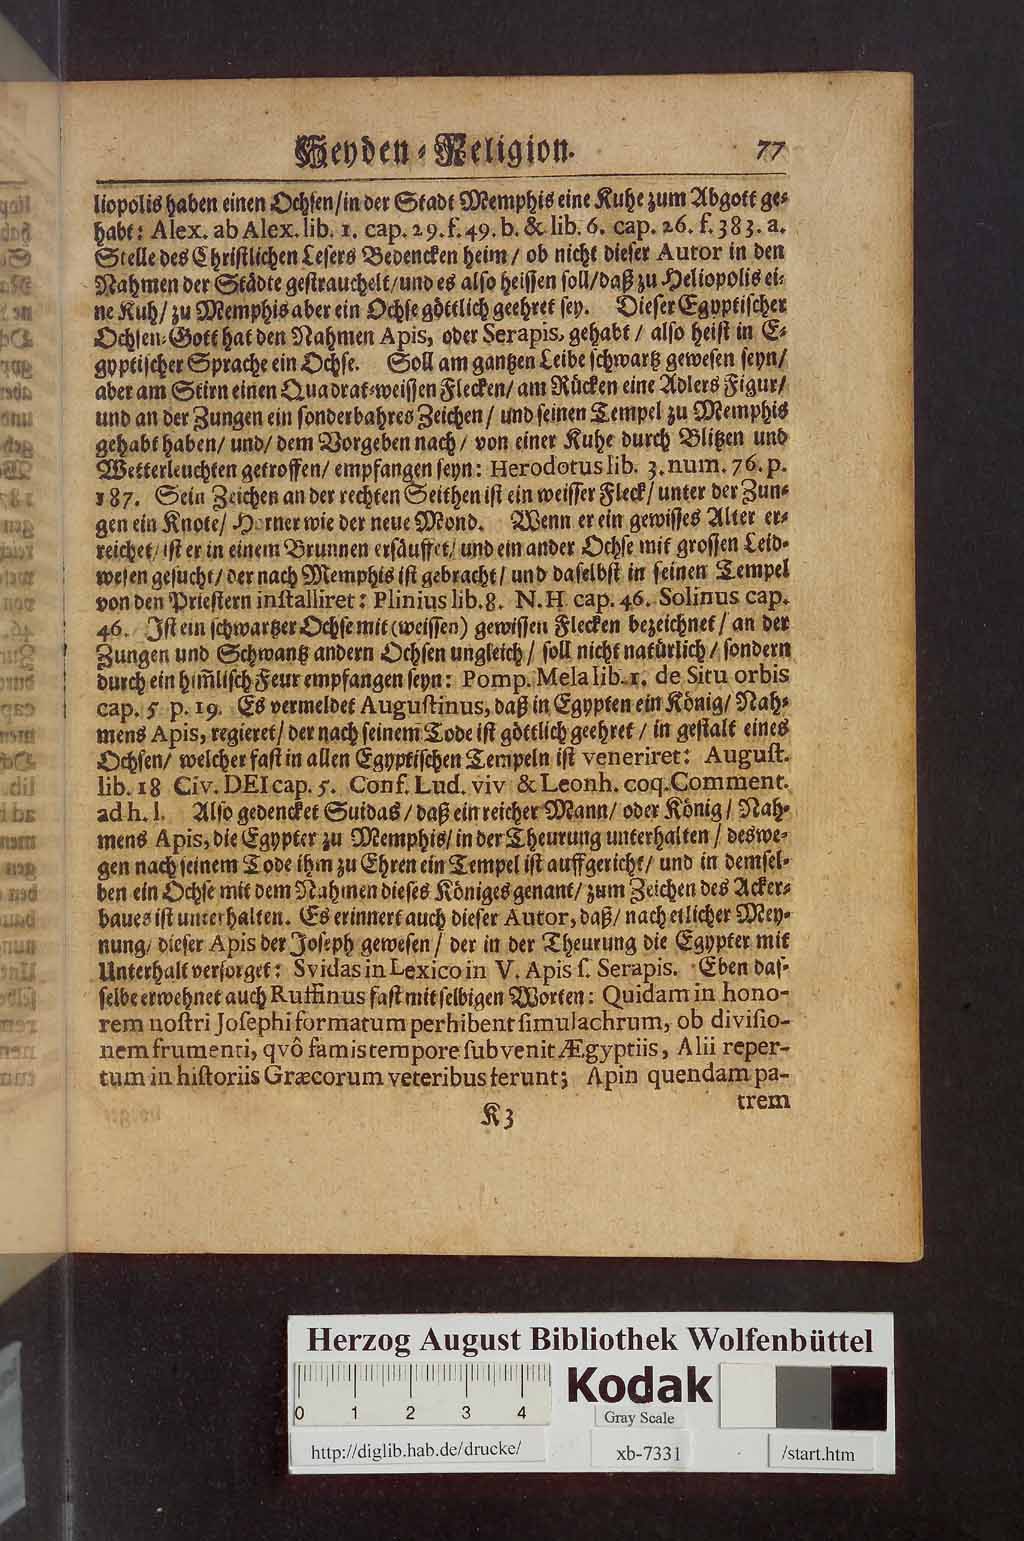 Heyden-Religion. 77
liopolis haben einen Ochsen/in der Stadt Memphis eine Kuhe zum Abgott ge-
habt: Alex. ab Alex. lib. 1. cap. 29. f. 49. b. & lib. 6. cap. 26. f. 383. a.
Stelle des Christlichen Lesers Bedencken heim/ ob nicht dieser Autor in den
Nahmen der Städte gestrauchelt/und es also heissen soll/daß zu Heliopolis ei-
ne Kuh/ zu Memphis aber ein Ochse göttlich geehret sey. Dieser Egyptischer
Ochsen-Gott hat den Nahmen Apis, oder Serapis, gehabt/ also heist in E-
gyptischer Sprache ein Ochse. Soll am gantzen Leibe schwartz gewesen seyn/
aber am Stirn einen Quadrat-weissen Flecken/ am Rücken eine Adlers Figur/
und an der Zungen ein sonderbahres Zeichen/ und seinen Tempel zu Memphis
gehabt haben/ und/ dem Vorgeben nach/ von einer Kuhe durch Blitzen und
Wetterleuchten getroffen/ empfangen seyn: Herodotus lib. 3. num. 76. p.
187. Sein Zeichen an der rechten Seithen ist ein weisser Fleck/ unter der Zun-
gen ein Knote/ Horner wie der neue Mond. Wenn er ein gewisses Alter er-
reichet/ ist er in einem Brunnen ersäuffet/ und ein ander Ochse mit grossen Leid-
wesen gesucht/ der nach Memphis ist gebracht/ und daselbst in seinen Tempel
von den Priestern installiret: Plinius lib. 8. N. H cap. 46. Solinus cap.
46. Ist ein schwartzer Ochse mit (weissen) gewissen Flecken bezeichnet/ an der
Zungen und Schwantz andern Ochsen ungleich/ soll nicht natürlich/ sondern
durch ein him̃lisch Feur empfangen seyn: Pomp. Mela lib. 1. de Situ orbis
cap. 5 p. 19. Es vermeldet Augustinus, daß in Egypten ein König/ Nah-
mens Apis, regieret/ der nach seinem Tode ist göttlich geehret/ in gestalt eines
Ochsen/ welcher fast in allen Egyptischen Tempeln ist veneriret: August.
lib. 18 Civ. DEI cap. 5. Conf. Lud. viv & Leonh. coq. Comment.
ad h. l. Also gedencket Suidas/ daß ein reicher Mann/ oder König/ Nah-
mens Apis, die Egypter zu Memphis/ in der Theurung unterhalten/ deswe-
gen nach seinem Tode ihm zu Ehren ein Tempel ist auffgericht/ und in demsel-
ben ein Ochse mit dem Nahmen dieses Königes genant/ zum Zeichen des Acker-
baues ist unterhalten. Es erinnert auch dieser Autor, daß/ nach etlicher Mey-
nung/ dieser Apis der Joseph gewesen/ der in der Theurung die Egypter mit
Unterhalt versorget: Svidas in Lexico in V. Apis s. Serapis. Eben das-
selbe erwehnet auch Ruffinus fast mit selbigen Worten: Quidam in hono-
rem nostri Josephi formatum perhibent simulachrum, ob divisio-
nem frumenti, qvô famis tempore subvenit Ægyptiis, Alii reper-
tum in historiis Græcorum veteribus ferunt; Apin quendam pa-
trem
K 3
Herzog August Bibliothek Wolfenbüttel
0 1 2 3 4
Kodak
Gray Scale
http://diglib.hab.de/drucke/ xb-7331 /start.htm